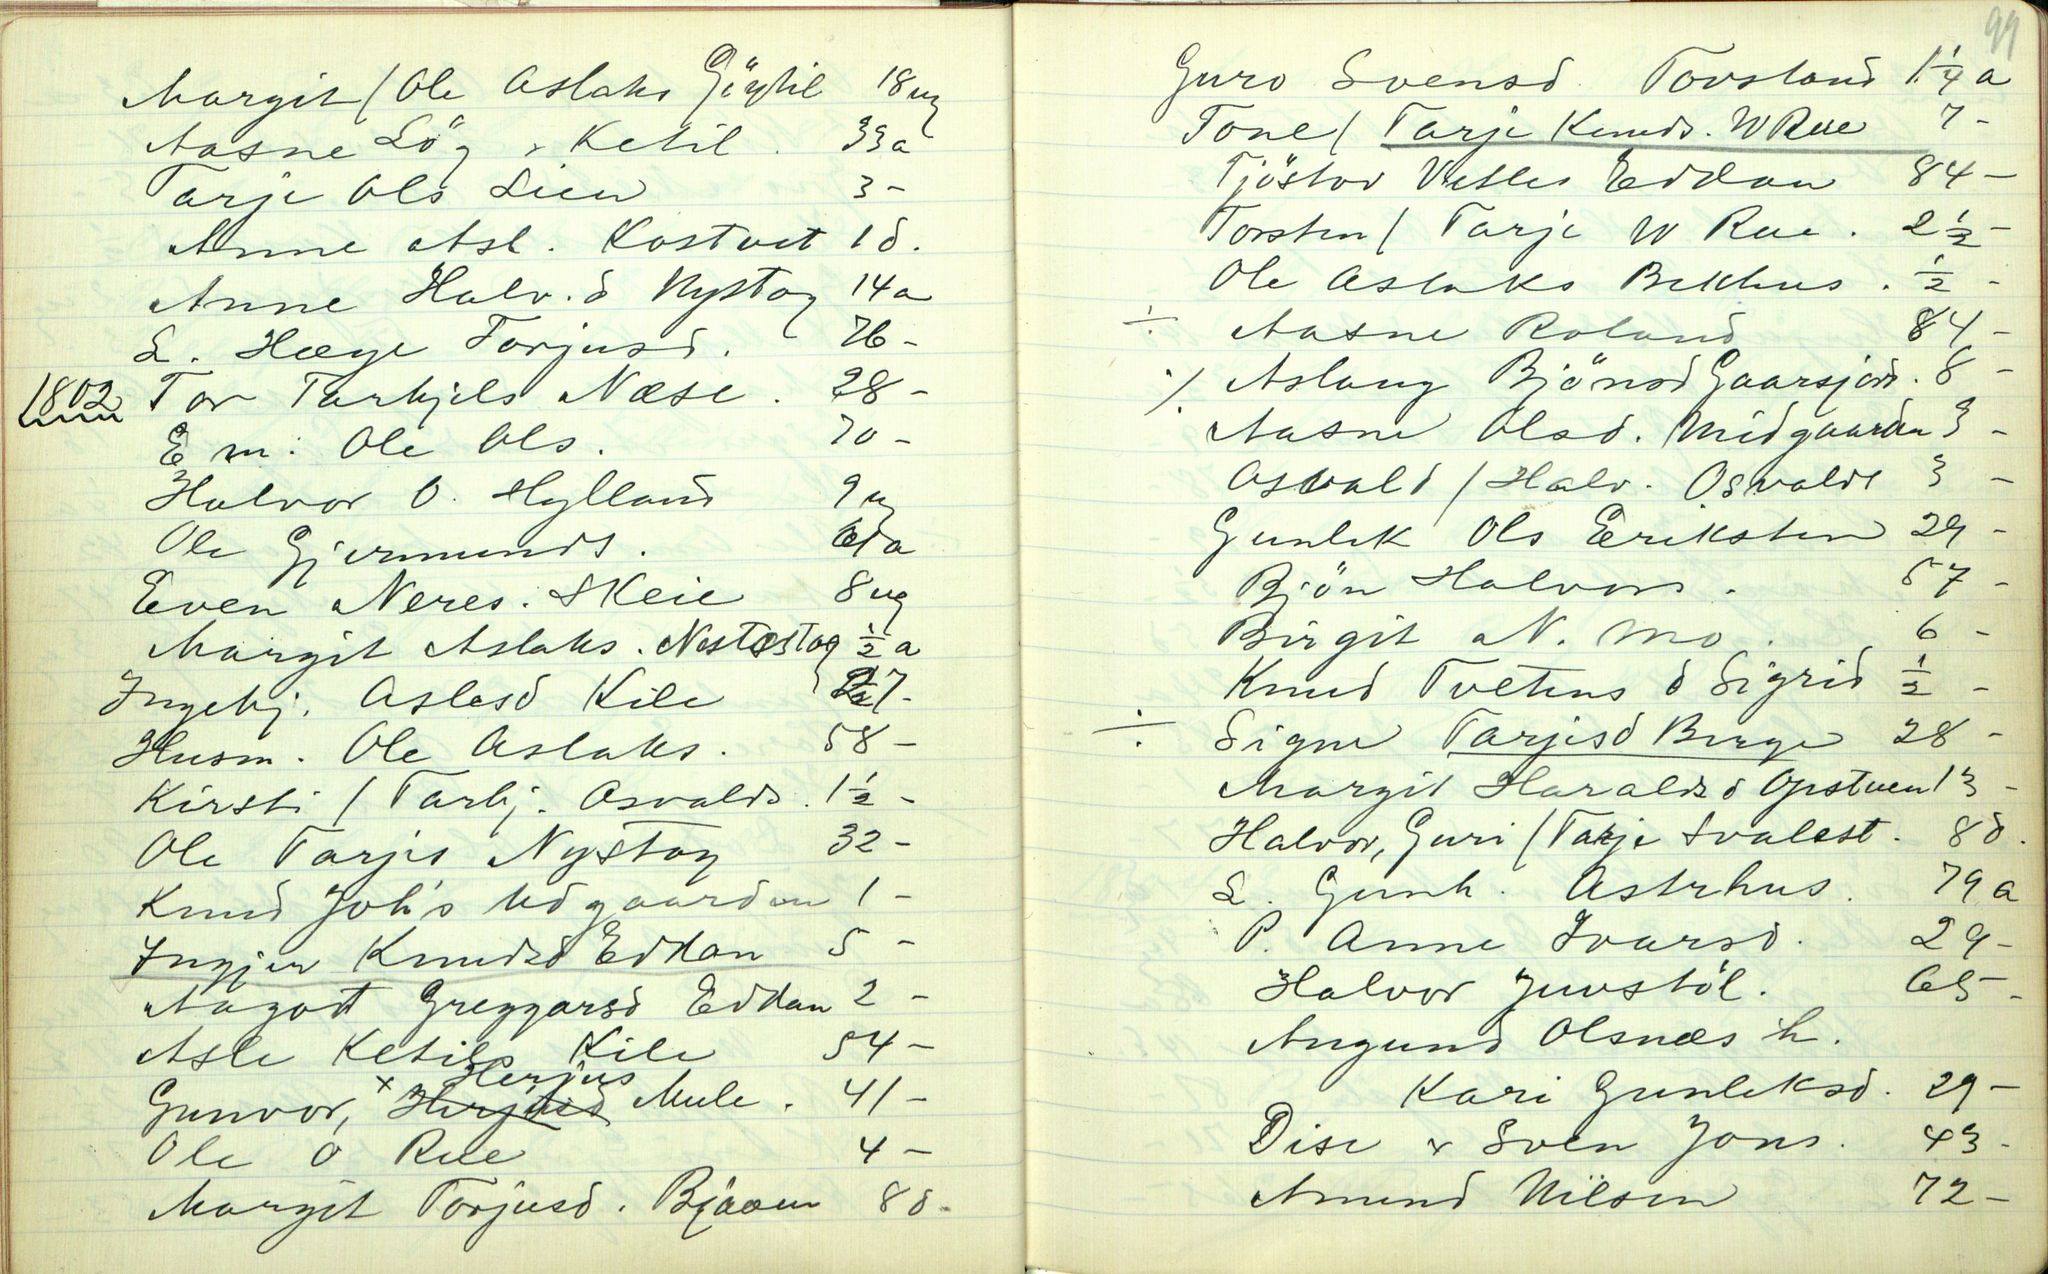 Margit / Ole Aslaks Göytil 18 ug
Aasne Lög x Ketil . 33 a
Tarje Ols Lien 3 -
Anne Asl. Kostveit 1 d.
Anne Halv.d Nystog 14 a
L. Hæge Torjusd. 76 -
1802 Tor Tarkjels Næse . 28 -
E m. Ole Ols. 70 -
Halvor O. Hylland 9 ug
Ole Gjermunds . a
Even Neres. Skeie 8 ug
Margit Aslaks. Nestestog ½ a
Ingebj. Aslesd Kile 27 -
Husm. Ole Aslaks. 58 -
Kirsti / Tarkj. Osvalds. 1½ -
Ole Tarjis Nystog 32 -
Knud Joh's Udgaarden 1 -
Ingjer Knudsd Eddan 5 -
Aagot Greggarsd Eddan 2 -
Asle Ketils Kile 54 -
Herjus
Gunvor, x Herjusd Mule . 41 -
Ole O Rue 4 -
Margit Torjusd. Bjaaen 8 d.
99
Guro Svensd. Tovsland 1¼ a
Tone / Tarje Knuds. W Rue 7 -
Tjöstov Vetles Eddan 84 -
Torsten / Tarje W Rue . 2½ -
Ole Aslaks Bekhus . ½ -
÷ Aasne Roland 84 -
·/. Aslaug Bjönsd Gaarsjord. 8 -
Aasne Olsd. Midgaarden 3 -
Osvald / Halv. Osvalds 3 -
Gunlek Ols Eriksten 29 -
Bjön Halvors . 57 -
Birgit N. Mo . 6 -
Knud Tvetens d Sigrid ½ -
÷ Signe Tarjesd Berge 28 -
Margit Haraldsd Opstuen 13 -
Halvor, Guri / Tarje Svalest. 8 d.
L. Gunh. Astrhus . 79 a
P. Anne Ivarsd. 29 -
Halvor Juvstöl. 65 -
Augund Olsnæs h.
Kari Gunleksd. 29 -
Dise x Sven Jons. 43 -
Amund Nilsen 72 -